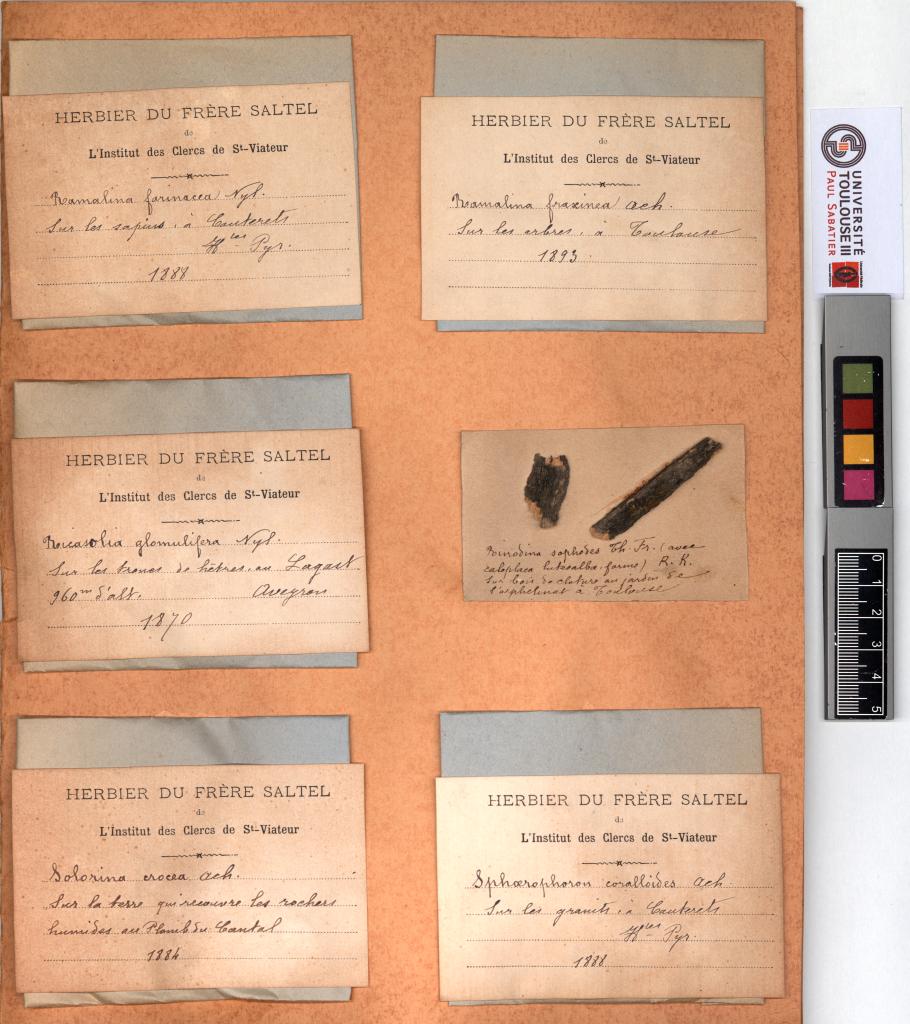 HERBIER DU FRÈRE SALTEL
de
L'Institut des Clercs de St-Viateur
Ramalina farinacea Nyl.
Sur les sapins, à Cauterets
Htes Pyr.
1888
HERBIER DU FRÈRE SALTEL
de
L'Institut des Clercs de St-Viateur
Ramalina fraxinea Ach.
Sur les arbres, à Toulouse
1893
HERBIER DU FRÈRE SALTEL
de
L'Institut des Clercs de St-Viateur
Ricasolia glomulifera Nyl.
Sur les troncs de hêtres, au Lagast
960m d'alt. Aveyron
1870
Rinodina sophodes Th. Fr. (avec
caloplaca luteoalba forme) R. R.
Sur bois de cloture au jardin de
l'orphelinat à Toulouse
HERBIER DU FRÈRE SALTEL
de
L'Institut des Clercs de St-Viateur
Solorina crocea Ach.
Sur la terre qui recouvre les rochers
humides au Plomb du Cantal
1884
HERBIER DU FRÈRE SALTEL
de
L'Institut des Clercs de St-Viateur
Sphærophoron coralloides Ach.
Sur les granits, à Cauterets
Htes Pyr.
1888
UNIVERSITÉ
TOULOUSE III
PAUL SABATIER
0 1 2 3 4 5